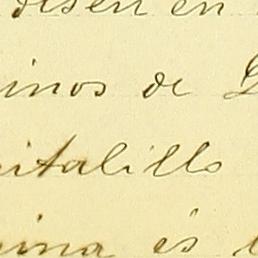 desen en
inos de G
italillo
ina es